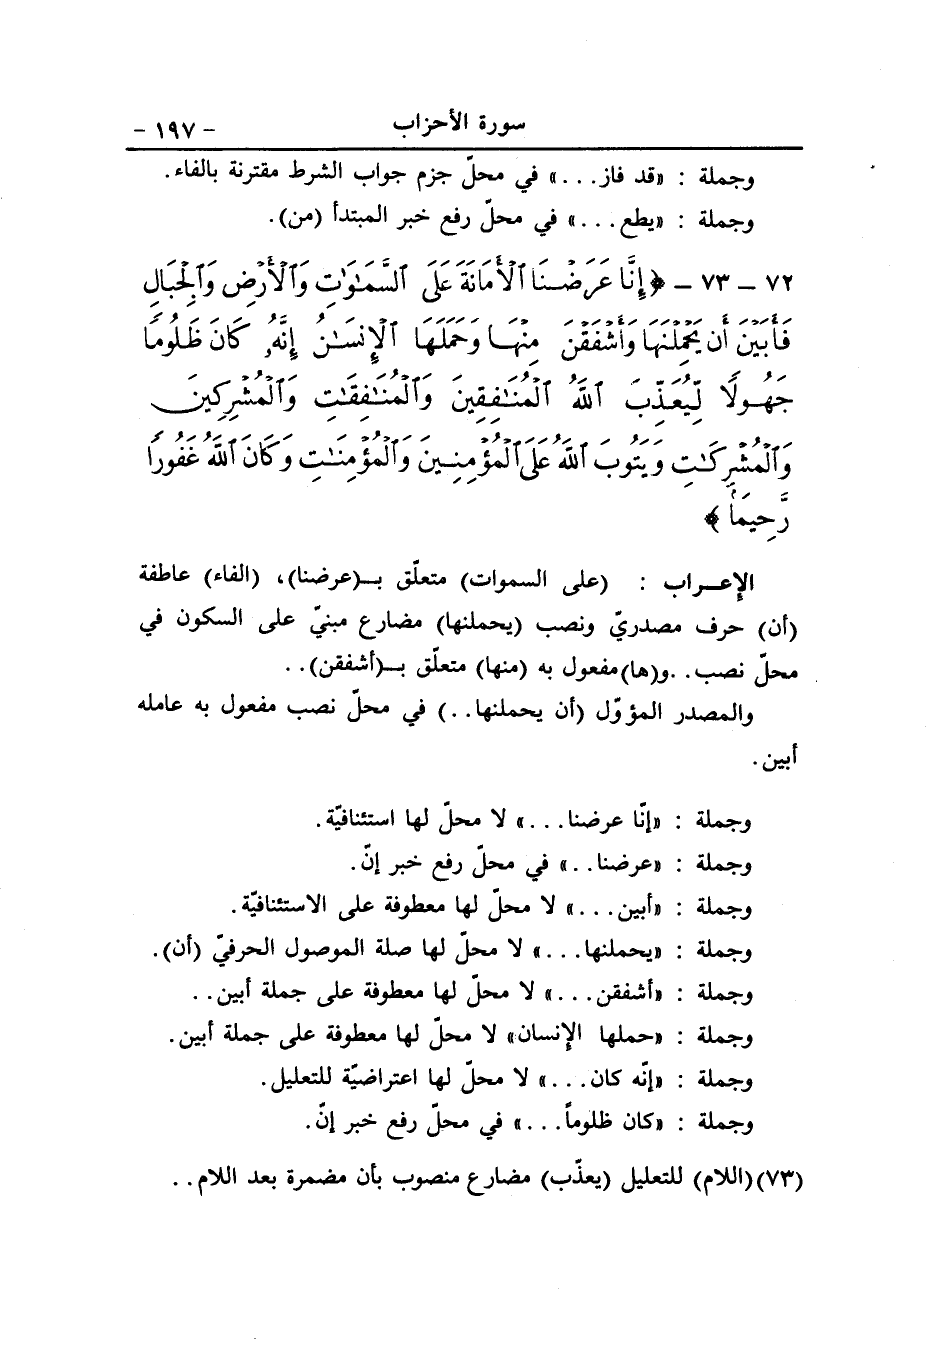 سورة الأحزاب - ١٩٧ -
وجملة : «قد فاز. . .» في محلّ جزم جواب الشرط مقترنة بالفاء.
وجملة : «يطع. . .» في محلّ رفع خبر المبتدأ (من).
٧٢ – ٧٣ – ﴿إِنَّا عَرَضْنَا ٱلْأَمَانَةَ عَلَى ٱلسَّمَٰوَٰتِ وَٱلْأَرْضِ وَٱلْجِبَالِ
فَأَبَيْنَ أَن يَحْمِلْنَهَا وَأَشْفَقْنَ مِنْهَا وَحَمَلَهَا ٱلْإِنسَٰنُ إِنَّهُۥ كَانَ ظَلُومًا
جَهُولًا لِّيُعَذِّبَ ٱللَّهُ ٱلْمُنَٰفِقِينَ وَٱلْمُنَٰفِقَٰتِ وَٱلْمُشْرِكِينَ
وَٱلْمُشْرِكَٰتِ وَيَتُوبَ ٱللَّهُ عَلَى ٱلْمُؤْمِنِينَ وَٱلْمُؤْمِنَٰتِ وَكَانَ ٱللَّهُ غَفُورًا
رَّحِيمًا﴾
الإعراب : (على السموات) متعلّق بـ(عرضنا)، (الفاء) عاطفة
(أن) حرف مصدريّ ونصب (يحملنها) مضارع مبنيّ على السكون في
محلّ نصب. .و(ها)مفعول به (منها) متعلّق بـ(أشفقن). .
والمصدر المؤوّل (أن يحملنها. .) في محلّ نصب مفعول به عامله
أبين.
وجملة : «إنّا عرضنا. . .» لا محلّ لها استئنافيّة.
وجملة : «عرضنا. . .» في محلّ رفع خبر إنّ.
وجملة : «أبين. . .» لا محلّ لها معطوفة على الاستئنافيّة.
وجملة : «يحملنها. . .» لا محلّ لها صلة الموصول الحرفيّ (أن).
وجملة : «أشفقن. . .» لا محلّ لها معطوفة على جملة أبين. .
وجملة : «حملها الإنسان» لا محلّ لها معطوفة على جملة أبين.
وجملة : «إنّه كان. . .» لا محلّ لها اعتراضيّة للتعليل.
وجملة : «كان ظلوماً. . .» في محلّ رفع خبر إنّ.
(٧٣)(اللام) للتعليل (يعذّب) مضارع منصوب بأن مضمرة بعد اللام. .